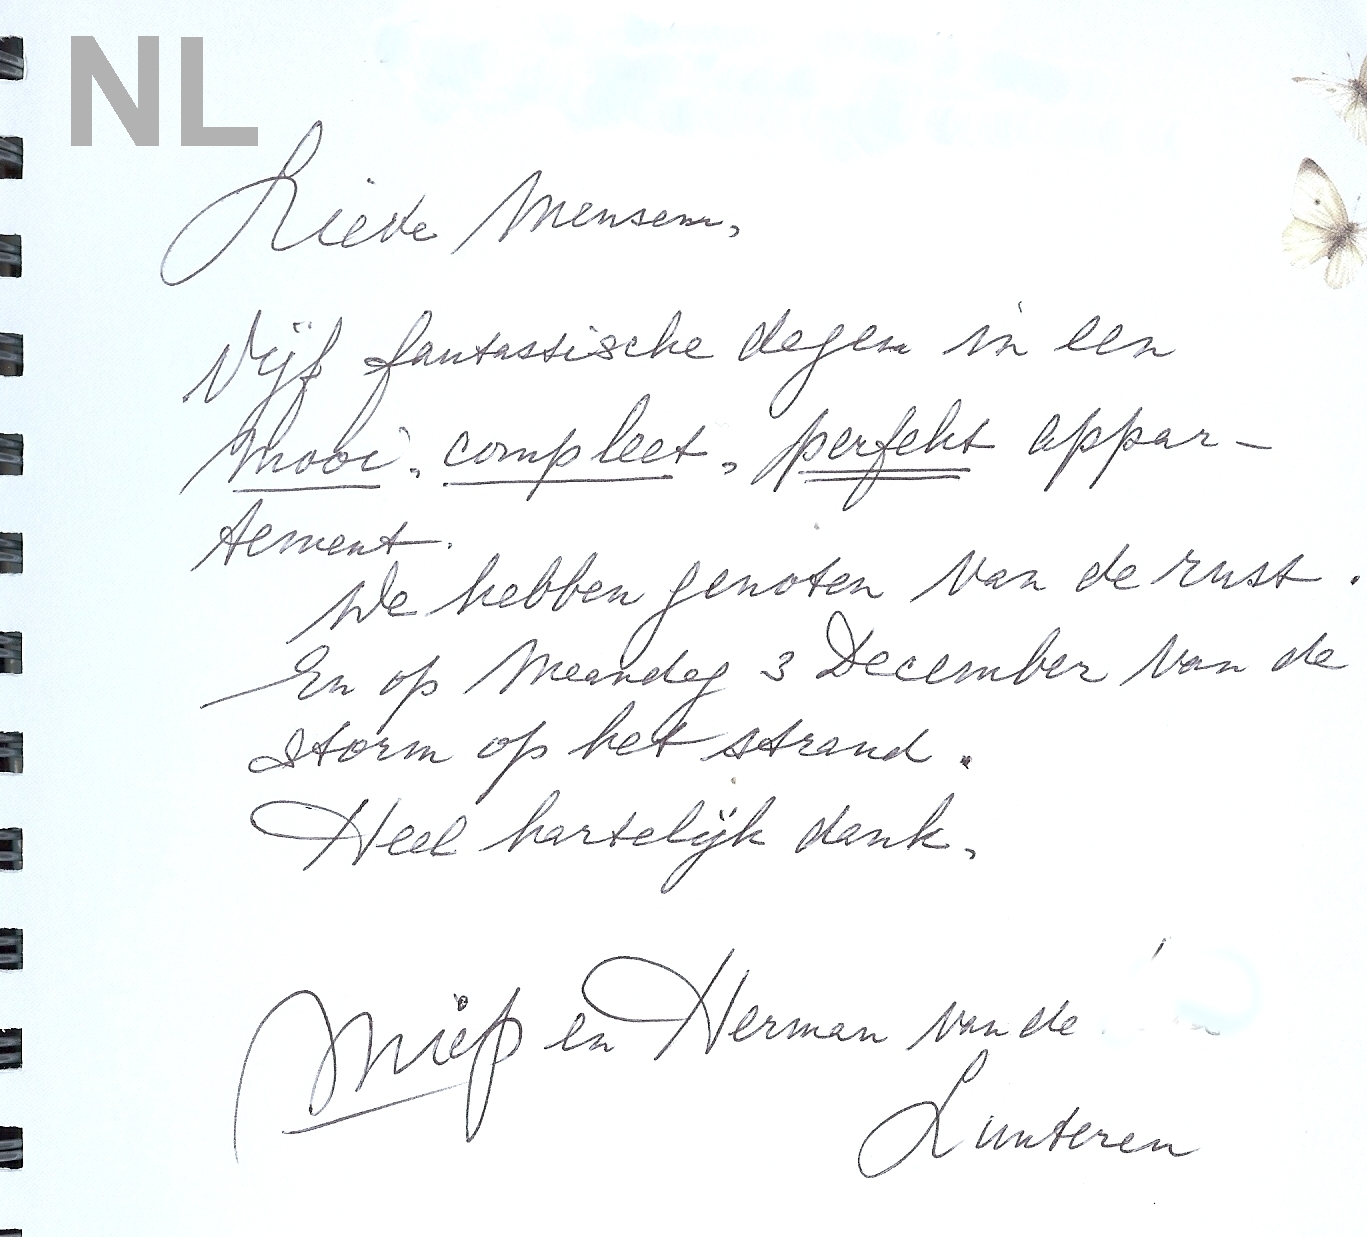 NL
Lieve Mensen,
Vijf fantastische dagen in een
mooi, compleet, perfekt appar-
tement.
We hebben genoten van de rust.
En op Maandag 3 December van de
storm op het strand.
Heel hartelijk dank,
Miep en Herman van de
Lunteren